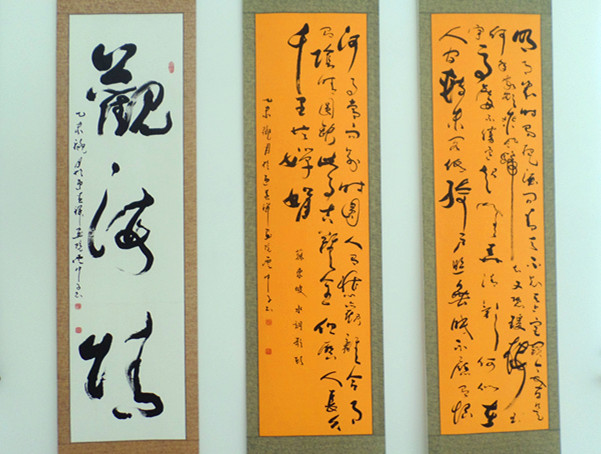 明月幾時有把酒問青天不知天上宮闕今夕是
何年我欲乘風歸去又恐瓊樓玉
宇高處不勝寒起舞弄清影何似在
人間轉朱閣低綺戶照無眠不應有恨
何事長向別時圓人有悲歡離合月
有陰晴圓缺此事古難全但願人長久
千里共嬋娟
蘇東坡水調歌頭
觀海